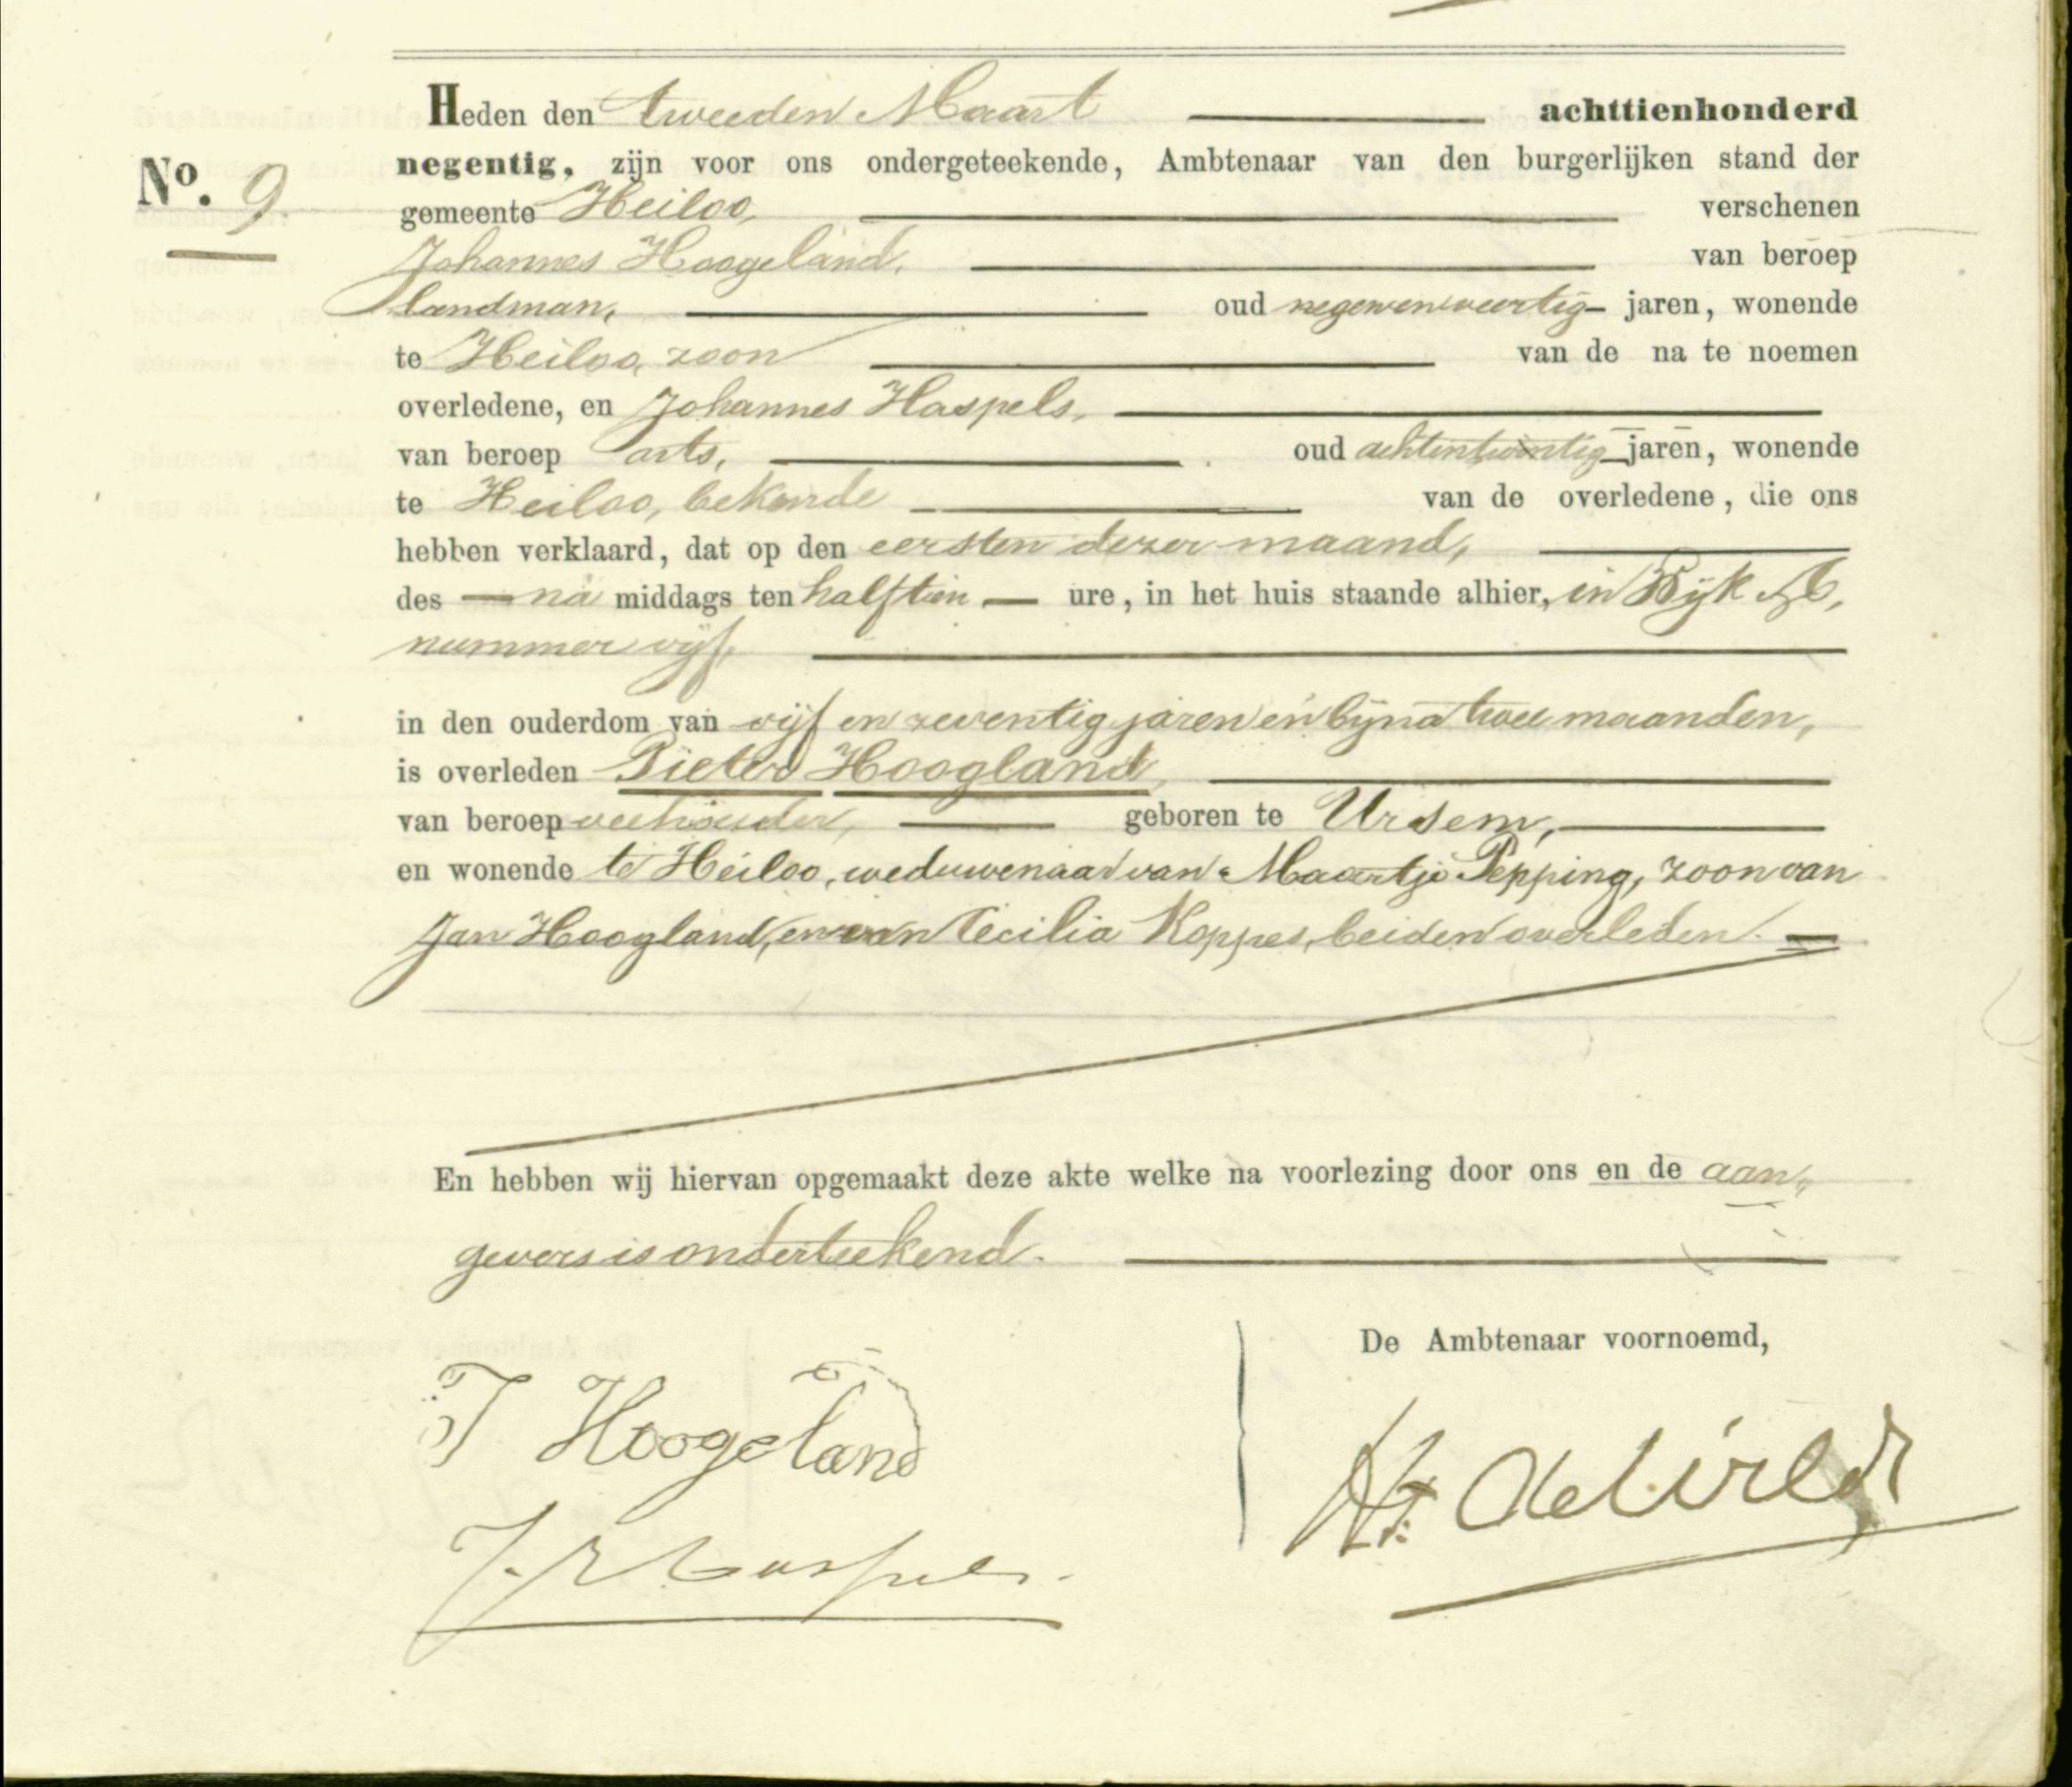 Heden den tweeden Maart achttienhonderd
No. 9
negentig, zijn voor ons ondergeteekende, Ambtenaar van den burgerlijken stand der
gemeente Heiloo, verschenen
Johannes Hoogeland, van beroep
landman, oud negenenveertig jaren, wonende
te Heiloo, zoon van de na te noemen
overledene, en Johannes Haspels,
van beroep arts, oud achtentwintig jaren, wonende
te Heiloo, bekende van de overledene, die ons
hebben verklaard, dat op den eersten dezer maand,
des na middags ten half tien ure, in het huis staande alhier, in Wijk
nummer vijf,
in den ouderdom van vijf en zeventig jaren en bijna twee maanden,
is overleden Pieter Hoogland,
van beroep veehouder, geboren te Ursem,
en wonende te Heiloo, weduwenaar van Maartje Pepping, zoon van
Jan Hoogland, en van Cecilia Koppes, beiden overleden.
En hebben wij hiervan opgemaakt deze akte welke na voorlezing door ons en de aan„
gevers is onderteekend.
De Ambtenaar voornoemd,
J Hoogeland